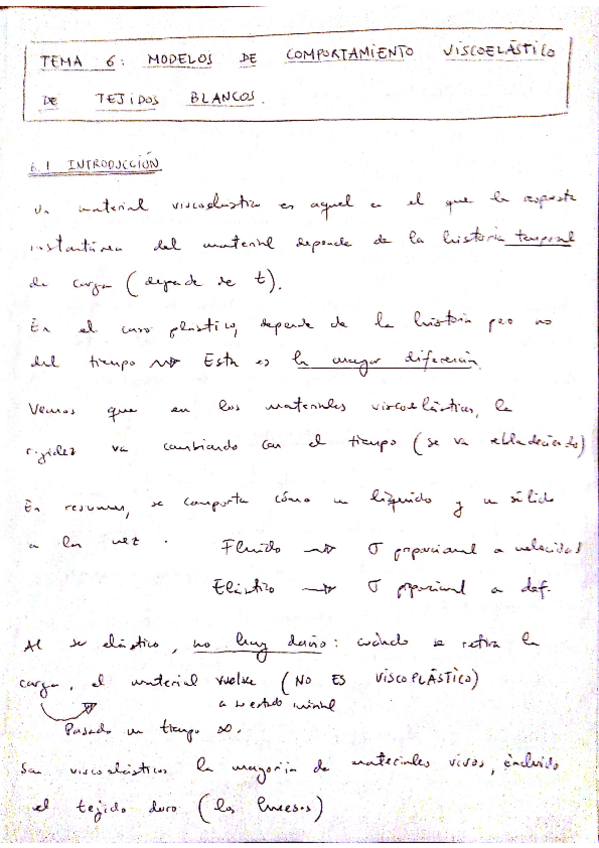 TEMA 6: MODELOS DE COMPORTAMIENTO VISCOELÁSTICO
DE TEJIDOS BLANCOS.
6.1 INTRODUCCIÓN
Un material viscoelastico es aquel en el que la respuesta
instantánea del material depende de la historia temporal
de carga (depende de t).
En el caso plastico, depende de la historia pero no
del tiempo ⇝ Esta es la mayor diferencia
Vemos que en los materiales viscoelásticos, la
rigidez va cambiando con el tiempo (se va reblandeciendo)
En resumen, se comporta cómo un líquido y un sólido
a la vez. Fluido ⇝ σ proporcional a velocidad
Elástico ⇝ σ proporcional a def.
Al ser elástico, no hay daño: cuándo se retira la
carga, el material vuelve (NO ES VISCOPLÁSTICO)
a su estado inicial
Pasado un tiempo ∞.
Son viscoelásticos la mayoría de materiales vivos, incluido
el tejido duro (los huesos)